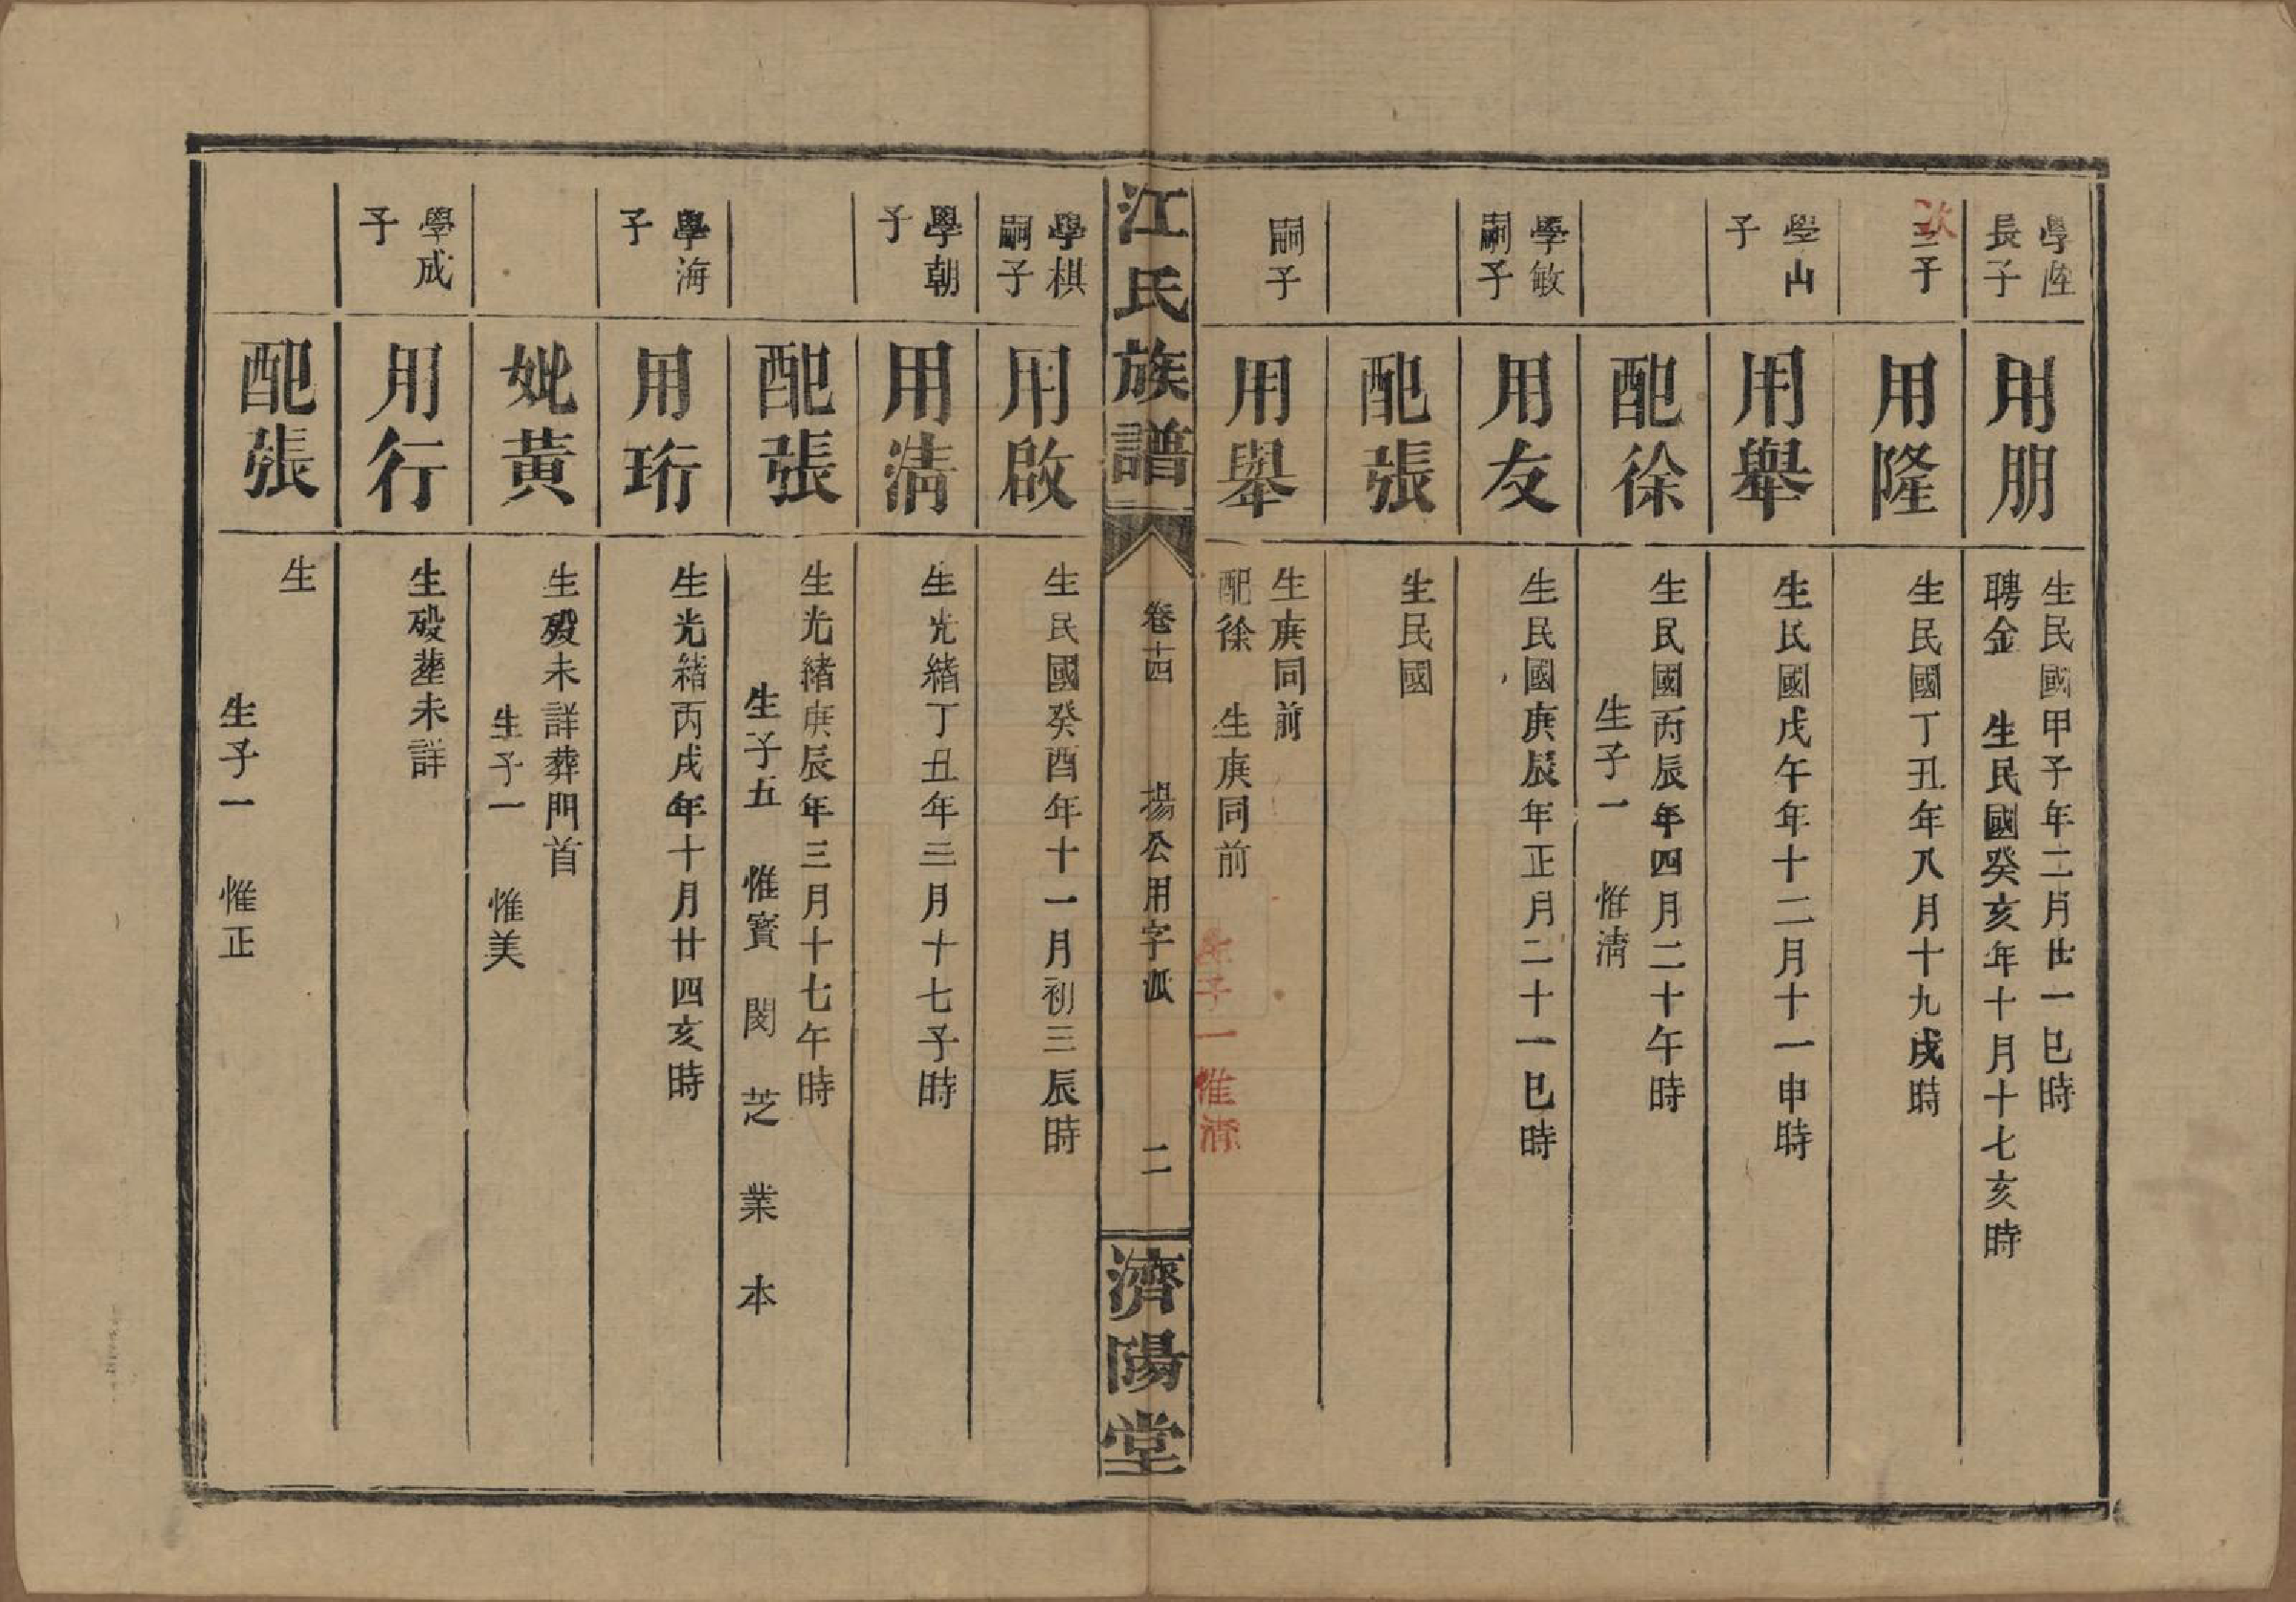 學陞
長子
用朋
生民國甲子年二月廿一巳時
聘金 生民國癸亥年十月十七亥時
次
三子
用隆
生民國丁丑年八月十九戌時
學山
子
用舉
生民國戊午年十二月十一申時
配徐
生民國丙辰年四月二十午時
生子一 惟淸
學敏
嗣子
用友
生民國庚辰年正月二十一巳時
配張
生民國
嗣子
用舉
生庚同前
配徐 生庚同前
子一惟淸
江氏族譜
卷十四 揚公用字派 二
濟陽堂
學棋
嗣子
用啟
生民國癸酉年十一月初三辰時
學朝
子
用淸
生光緒丁丑年三月十七子時
配張
生光緒庚辰年三月十七午時
生子五 惟寶 閔 芝 業 本
學海
子
用珩
生光緒丙戌年十月廿四亥時
妣黃
生歿未詳葬門首
生子一 惟美
學成
子
用行
生歿塟未詳
配張
生
生子一 惟正